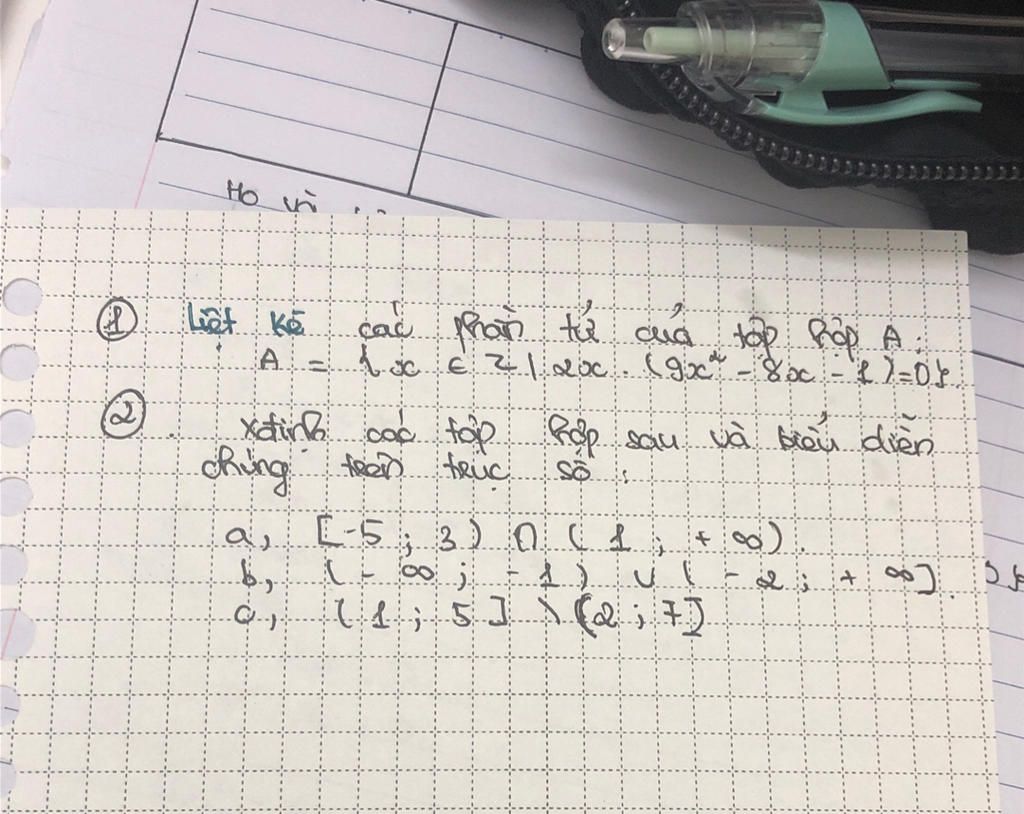 Họ và
① Liệt kê các phần tử của tập hợp A:
A = {x ∈ Z | 2x . (9x² - 8x - 1) = 0}.
② xđịnh các tập hợp sau và biểu diễn
chúng trên trục số:
a, [-5 ; 3) ∩ (1 ; + ∞).
b, (- ∞ ; - 1) ∪ (- 2 ; + ∞].
c, (1 ; 5] \ [2 ; 7]